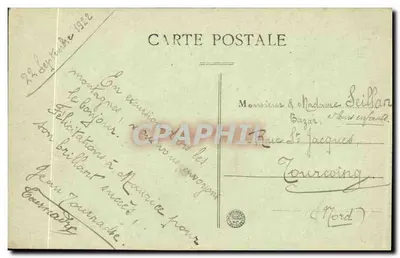 22 Septembre 1922
CARTE POSTALE
En excursion dans les
montagnes, vous envoyons
le bonjour.
Félicitations à Maurice pour
son brillant succès!
Jean Tournache
Monsieur & Madame Seillon
Bazar
Rue St Jacques
Tourcoing
(Nord)
CARTHAPHILE